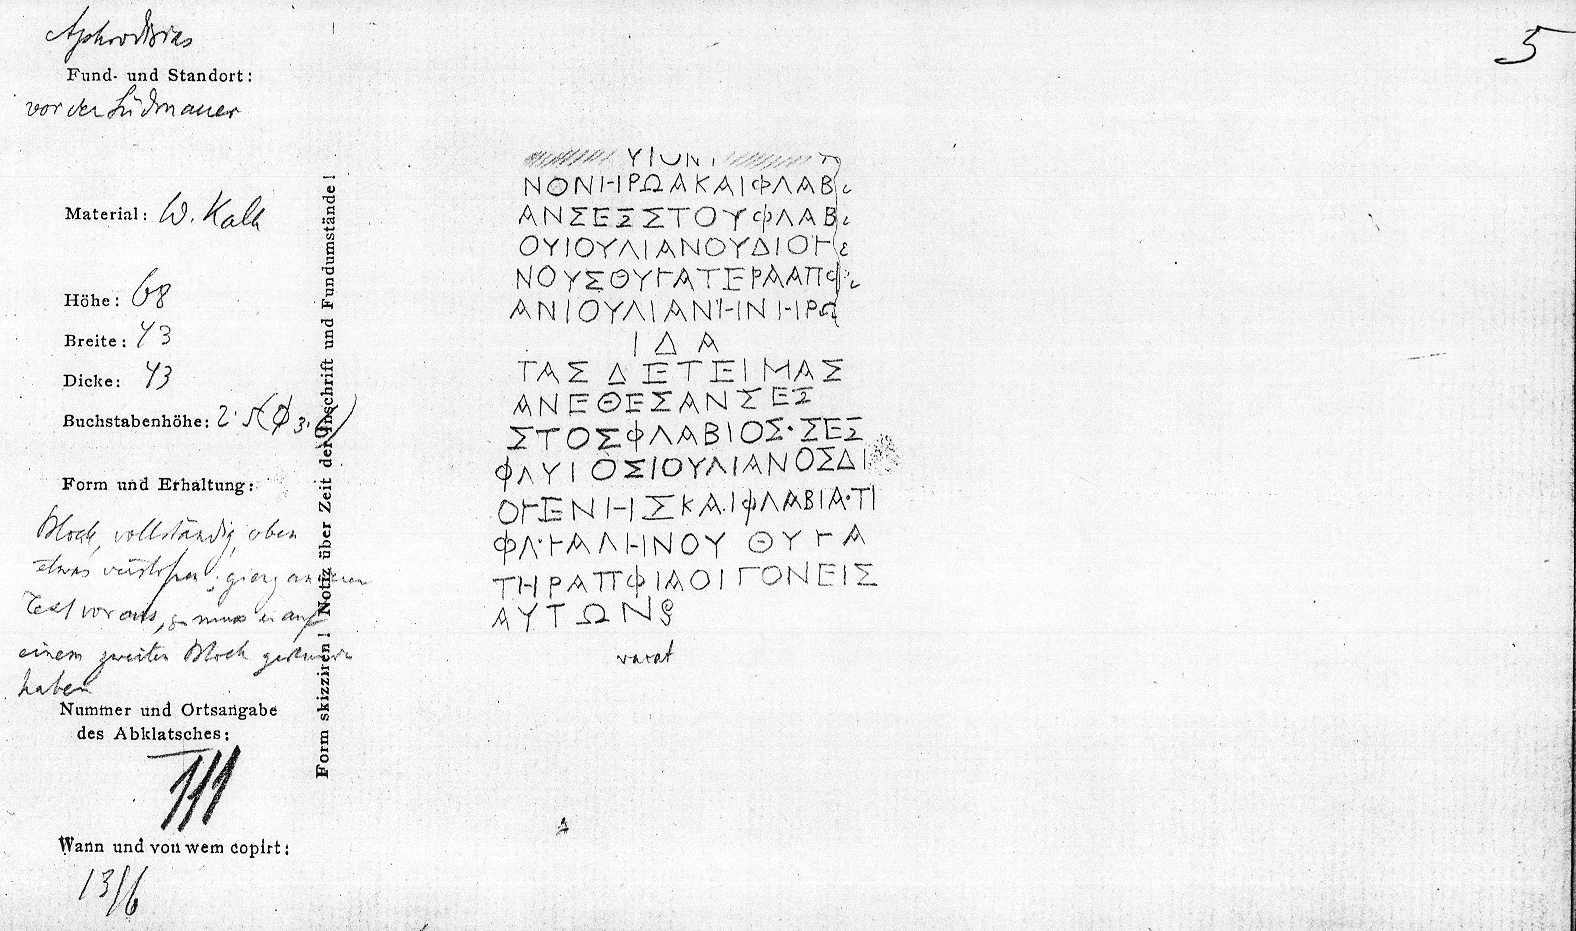 Aphrodisias
5
Fund- und Standort:
vor der Südmauer
Material: W. Kalk
Höhe: 68
Breite: 43
Dicke: 43
Buchstabenhöhe: 2·5 (Φ 3·
Form und Erhaltung:
Block, vollständig, oben
etwas ; ging anderer
Text voraus, muss er auf
einem zweiten Block gestanden
haben
Nummer und Ortsangabe
des Abklatsches:
Wann und von wem copirt:
13/6
Form skizziren! Notiz über Zeit der Inschrift und Fundumstände!
ΥΙΟΝ
ΝΟΝΗΡΩΑΚΑΙΦΛΑΒ
ΑΝΣΕΞΣΤΟΥΦΛΑΒ
ΟΥΙΟΥΛΙΑΝΟΥΔΙΟΓΕ
ΝΟΥΣΘΥΓΑΤΕΡΑΑΠΦΙ
ΑΝΙΟΥΛΙΑΝΗΝΗΡΩ
ΙΔΑ
ΤΑΣΔΕΤΕΙΜΑΣ
ΑΝΕΘΕΣΑΝΣΕΞ
ΣΤΟΣΦΛΑΒΙΟΣ·ΣΕΞ
ΦΛΥΙΟΣΙΟΥΛΙΑΝΟΣΔΙ
ΟΓΕΝΗΣΚΑΙΦΛΑΒΙΑ·ΤΙ
ΦΛ·ΓΑΛΗΝΟΥ ΘΥΓΑ
ΤΗΡΑΠΦΙΑΟΙΓΟΝΕΙΣ
ΑΥΤΩΝ
vacat